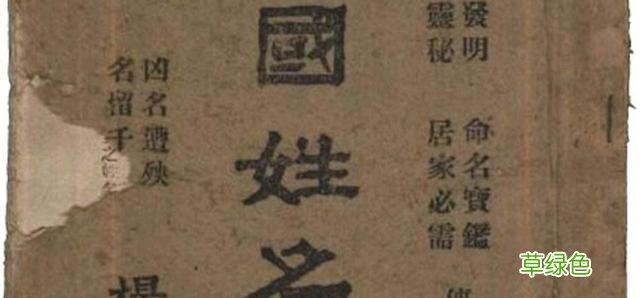 發明 命名寶鑑
靈秘 居家必需
國姓名
凶名遭殃
名留千
草绿色